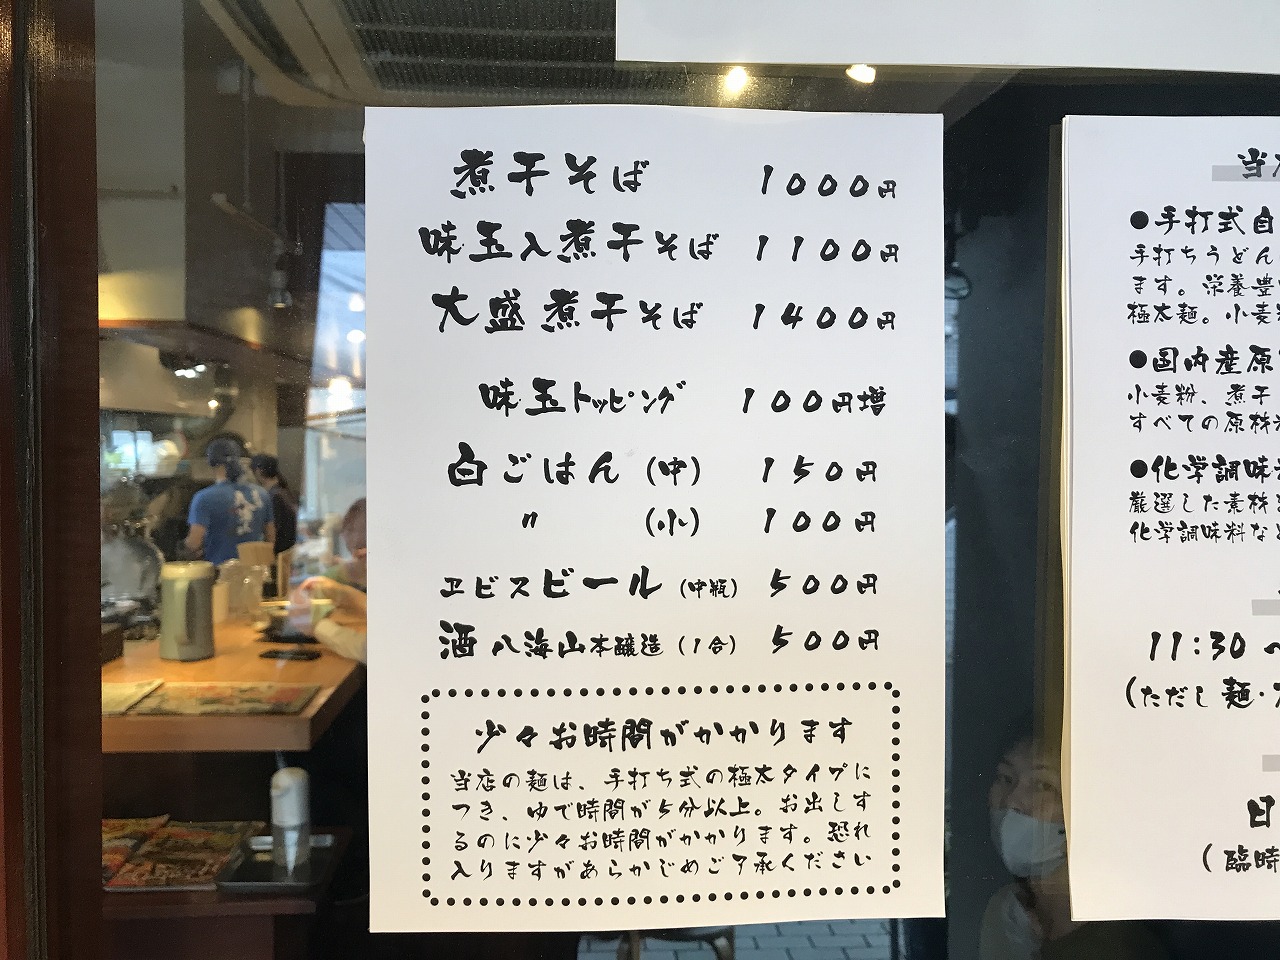 煮干そば 1000円
味玉入煮干そば 1100円
大盛煮干そば 1400円
味玉トッピング 100円増
白ごはん (中) 150円
〃 (小) 100円
ヱビスビール (中瓶) 500円
酒 八海山本醸造 (1合) 500円
少々お時間がかかります
当店の麺は、手打ち式の極太タイプに
つき、ゆで時間が5分以上。お出しす
るのに少々お時間がかかります。恐れ
入りますがあらかじめご了承ください
当
●手打式自
手打ちうどん
ます。栄養豊
極太麺。小麦粉
●国内産原
小麦粉、煮干
すべての原材
●化学調味
厳選した素材
化学調味料など
11:30 ~
(ただし 麺・
日
(臨時